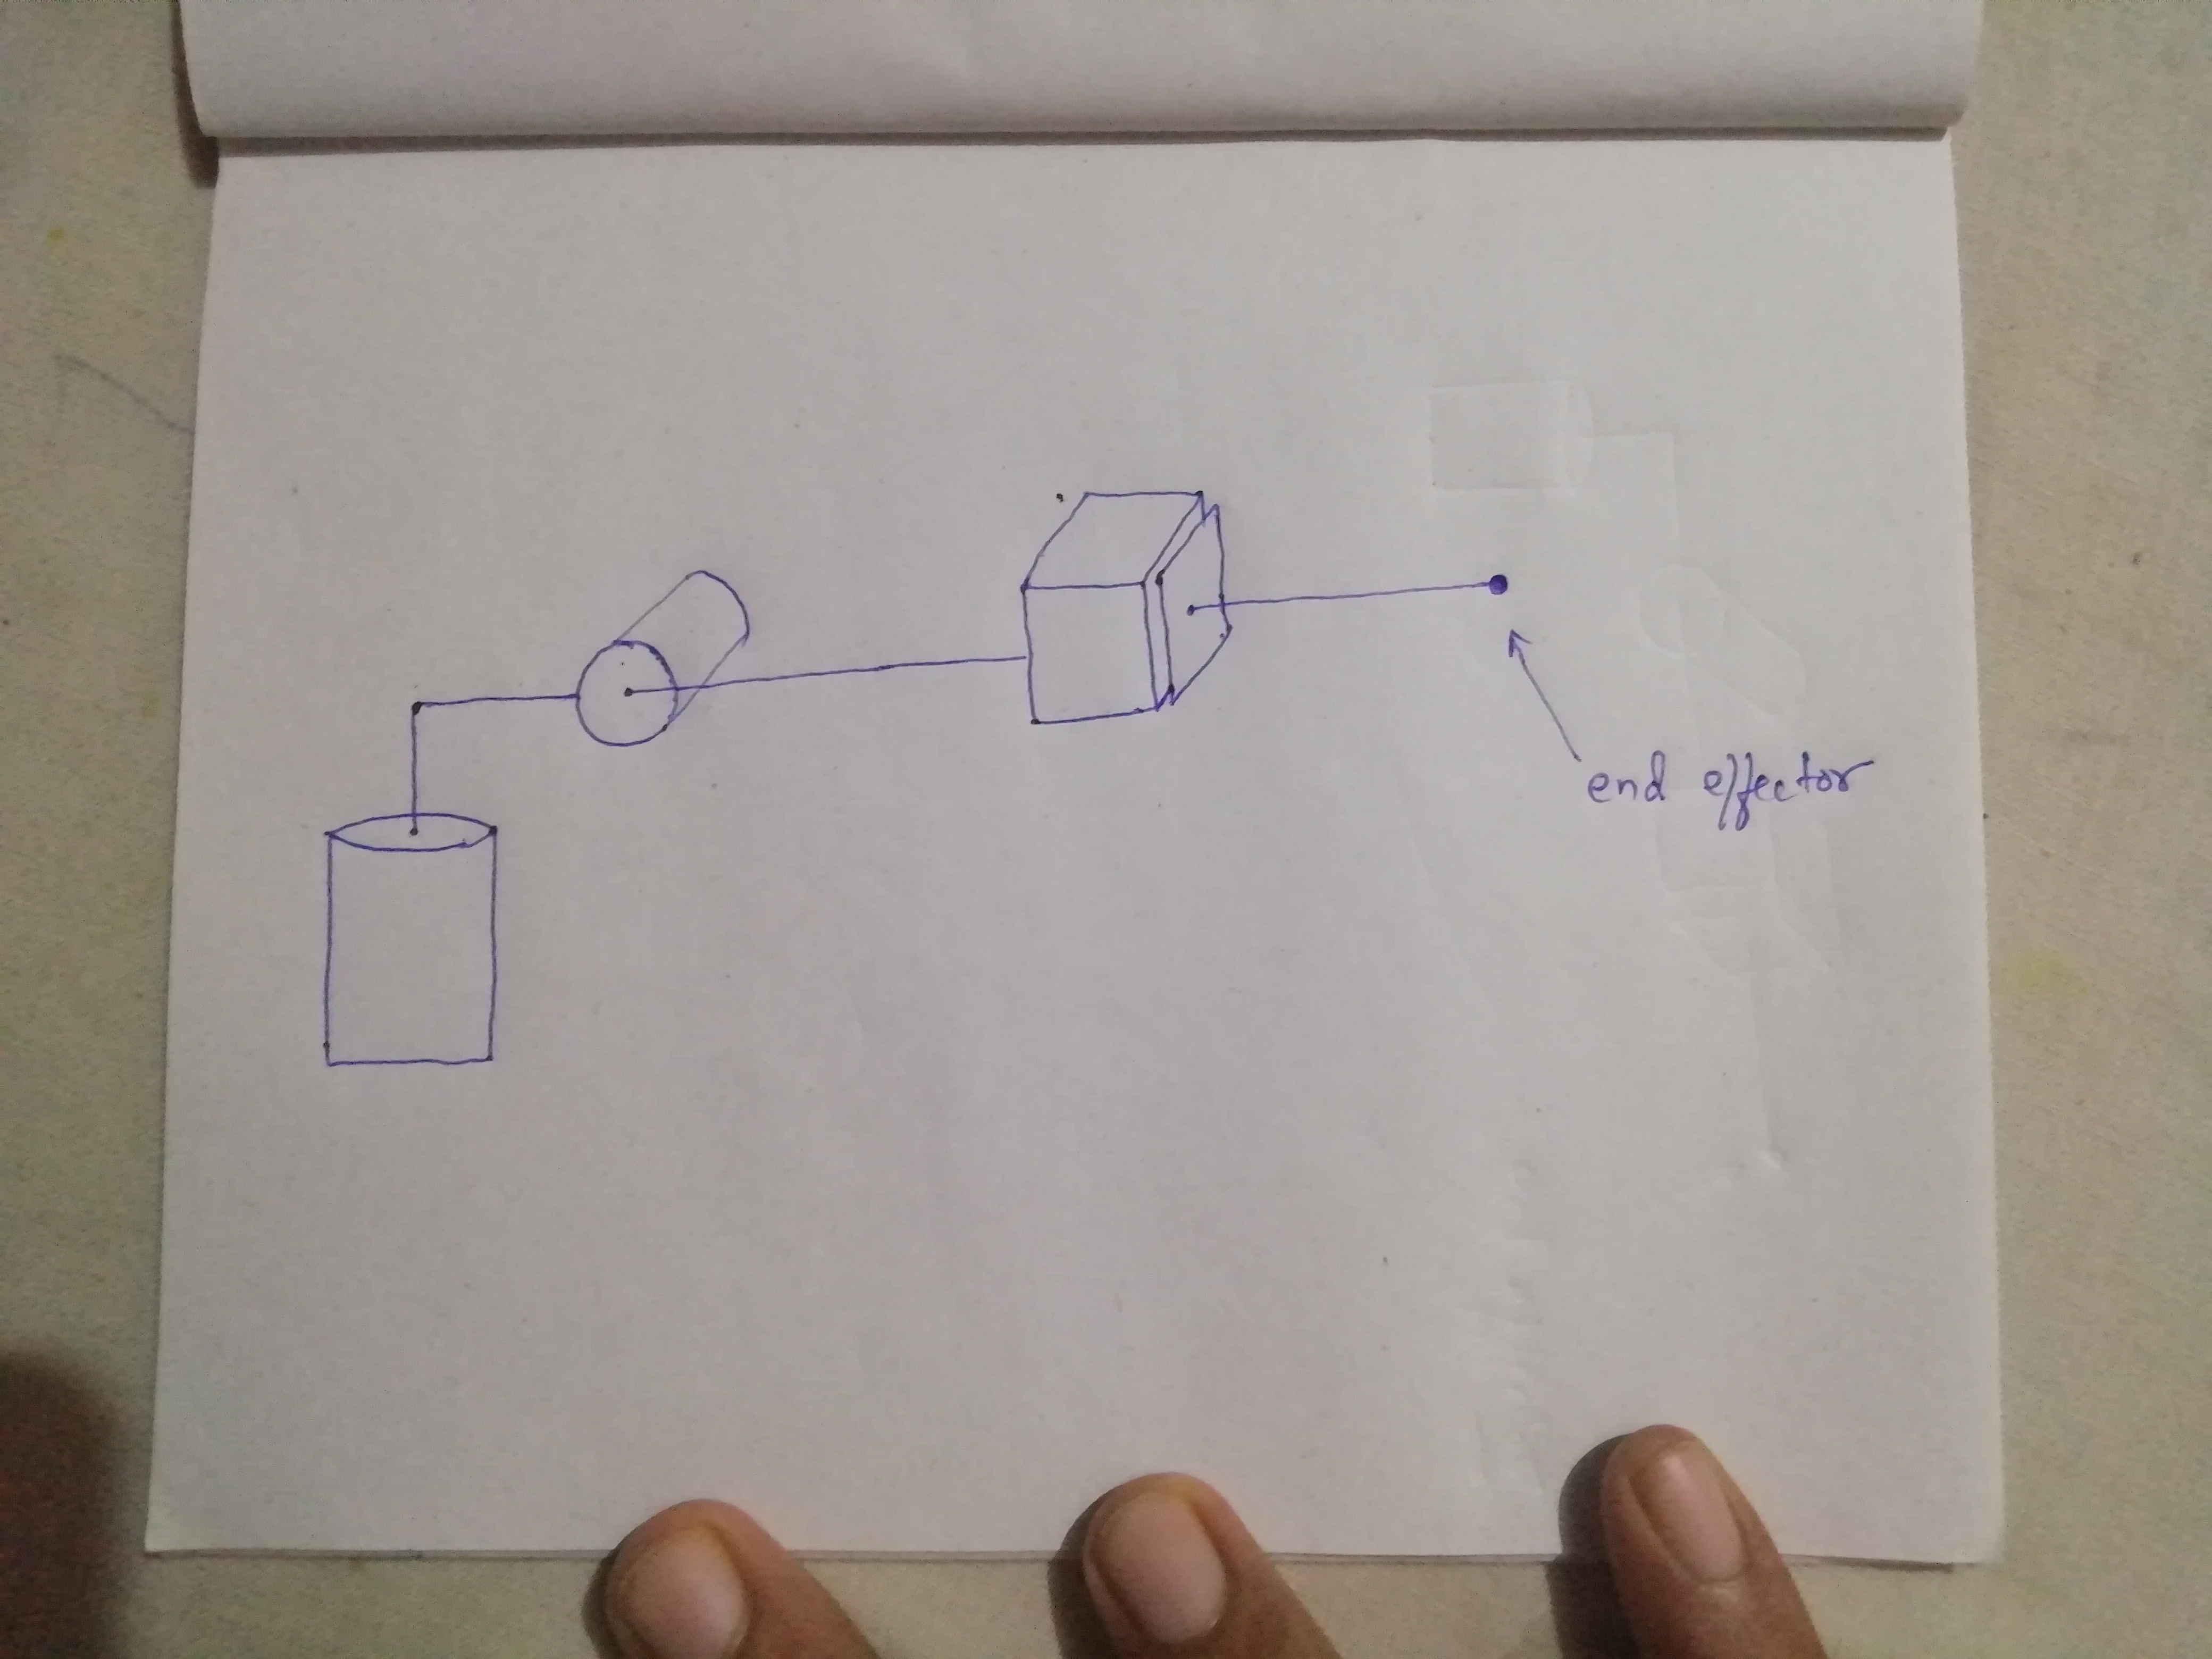 end effector